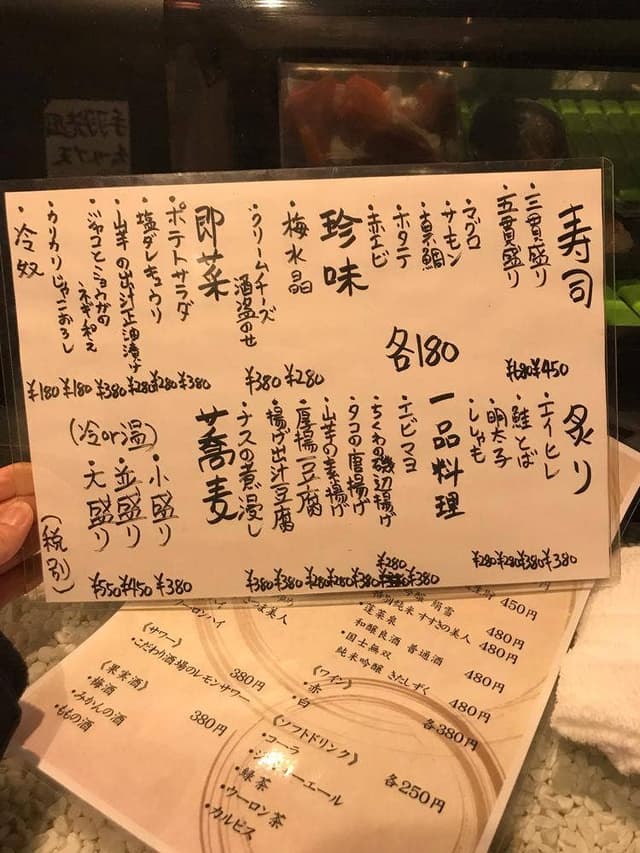 寿司
・三貫盛り ¥450
・五貫盛り ¥680
・マグロ
・サーモン
・真鯛
・ホタテ
・赤エビ
各180
珍味
・梅水晶 ¥280
・クリームチーズ
酒盗のせ ¥380
即菜
・ポテトサラダ ¥380
・塩ダレキュウリ ¥280
・山芋の出汁正油漬け ¥280
・ジャコとミョウガの
ネギ和え ¥380
・カリカリじゃこおろし ¥180
・冷奴 ¥180
炙り
・エイヒレ ¥380
・鮭とば ¥380
・明太子 ¥280
・ししゃも ¥280
一品料理
・エビマヨ ¥380
・ちくわの磯辺揚げ ¥280
・タコの唐揚げ ¥380
・山芋の素揚げ ¥280
・厚揚げ豆腐 ¥280
・揚げ出汁豆腐 ¥380
・ナスの煮浸し ¥380
蕎麦
(冷or温)
・小盛り ¥380
・並盛り ¥450
・大盛り ¥550
(税別)
《サワー》
・こだわり酒場のレモンサワー
380円
《果実酒》
・梅酒
・みかんの酒
・ももの酒
380円
450円
特別純米 すすきの美人 480円
・蓬莱泉
和醸良酒 普通酒 480円
・国士無双
純米吟醸 きたしずく 480円
《ワイン》
・赤
・白
各380円
《ソフトドリンク》
・コーラ
・ジンジャーエール
・緑茶
・ウーロン茶
・カルピス
各250円